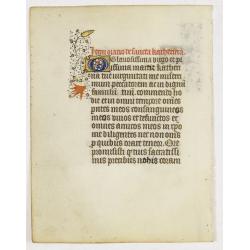 Item oratio de sancta katherina.
O Gloriosissima virgo et pi
issima mater kathe
rina due virginitati me miserri
mum peccatorem ac in dignū
famulū tuū. commendo ho
die et in omni tempore omēs
parētes meos consanguineos
meos vivos et defunctos et
omnes amicos meos in cpo
me diligentes nec non omēs
p quibus orare teneor. Que
promisisti q tuis sacratissi
mis precibus nobis coram